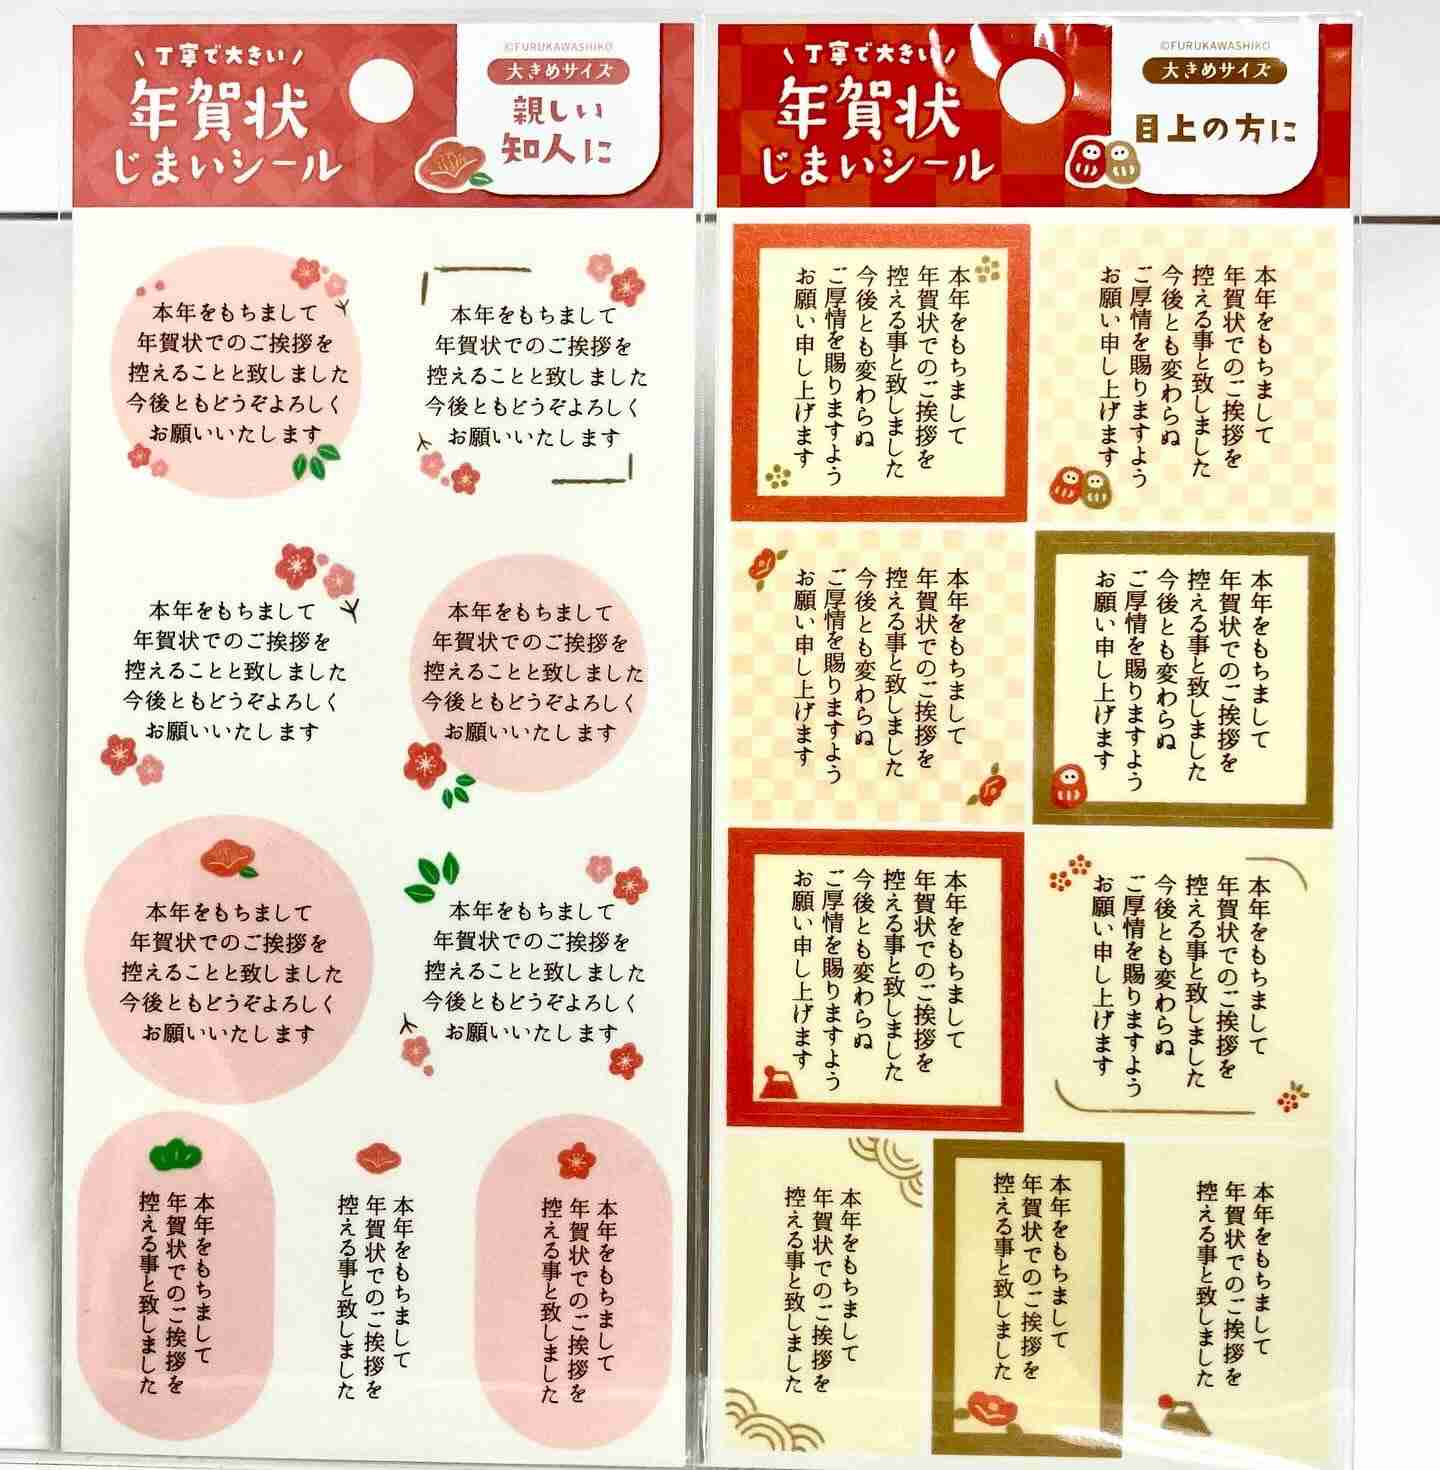 丁寧で大きい
年賀状
じまいシール
©FURUKAWASHIKO
大きめサイズ
親しい
知人に
本年をもちまして
年賀状でのご挨拶を
控えることと致しました
今後ともどうぞよろしく
お願いいたします
本年をもちまして
年賀状でのご挨拶を
控えることと致しました
今後ともどうぞよろしく
お願いいたします
本年をもちまして
年賀状でのご挨拶を
控えることと致しました
今後ともどうぞよろしく
お願いいたします
本年をもちまして
年賀状でのご挨拶を
控えることと致しました
今後ともどうぞよろしく
お願いいたします
本年をもちまして
年賀状でのご挨拶を
控えることと致しました
今後ともどうぞよろしく
お願いいたします
本年をもちまして
年賀状でのご挨拶を
控えることと致しました
今後ともどうぞよろしく
お願いいたします
本年をもちまして
年賀状でのご挨拶を
控える事と致しました
本年をもちまして
年賀状でのご挨拶を
控える事と致しました
本年をもちまして
年賀状でのご挨拶を
控える事と致しました
丁寧で大きい
年賀状
じまいシール
©FURUKAWASHIKO
大きめサイズ
目上の方に
本年をもちまして
年賀状でのご挨拶を
控える事と致しました
今後とも変わらぬ
ご厚情を賜りますよう
お願い申し上げます
本年をもちまして
年賀状でのご挨拶を
控える事と致しました
今後とも変わらぬ
ご厚情を賜りますよう
お願い申し上げます
本年をもちまして
年賀状でのご挨拶を
控える事と致しました
今後とも変わらぬ
ご厚情を賜りますよう
お願い申し上げます
本年をもちまして
年賀状でのご挨拶を
控える事と致しました
今後とも変わらぬ
ご厚情を賜りますよう
お願い申し上げます
本年をもちまして
年賀状でのご挨拶を
控える事と致しました
今後とも変わらぬ
ご厚情を賜りますよう
お願い申し上げます
本年をもちまして
年賀状でのご挨拶を
控える事と致しました
今後とも変わらぬ
ご厚情を賜りますよう
お願い申し上げます
本年をもちまして
年賀状でのご挨拶を
控える事と致しました
本年をもちまして
年賀状でのご挨拶を
控える事と致しました
本年をもちまして
年賀状でのご挨拶を
控える事と致しました